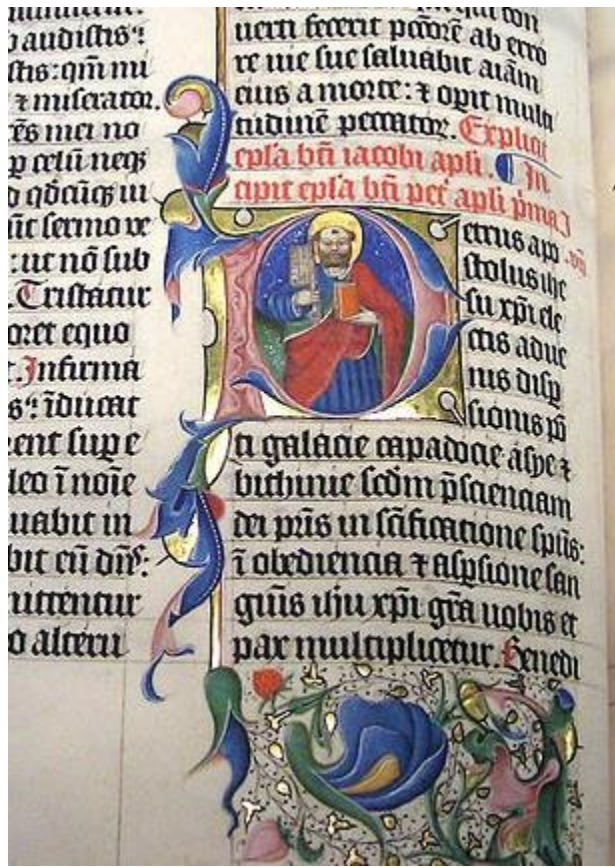 audistis:
stis: qm̄ mi
⁊ miserator.
r̄es mei no
ꝑ celū neqꝫ
qd̄cūqꝫ iu
aūt sermo ve
: ut nō sub
. Tristatur
oret equo
. Infirma
s: īducat
rent sup e
leo ī noīe
uabit in
bit eū dn̄s:
nittentur
o alterū
uerti fecerit pctōrē ab erro
re uie sue saluabit aīam
eius a morte: ⁊ opit multi
tudinē peccator. Explicit
epl̄a bt̄i iacobi apl̄i. In
cipit epl̄a bt̄i pet' apl̄i p̄ma
Petrus apo
stolus ihe
su xp̄i ele
ctis adue
nis disꝑ
sionis pō
ti galacie capadocie asye ⁊
bithinie scd̄m p̄scienciam
dei pr̄is in sc̄ificatione sp̄us:
ī obediencia ⁊ asꝑsione san
guīs ihū xp̄i gr̄a uobis et
pax multiplicetur. Benedi